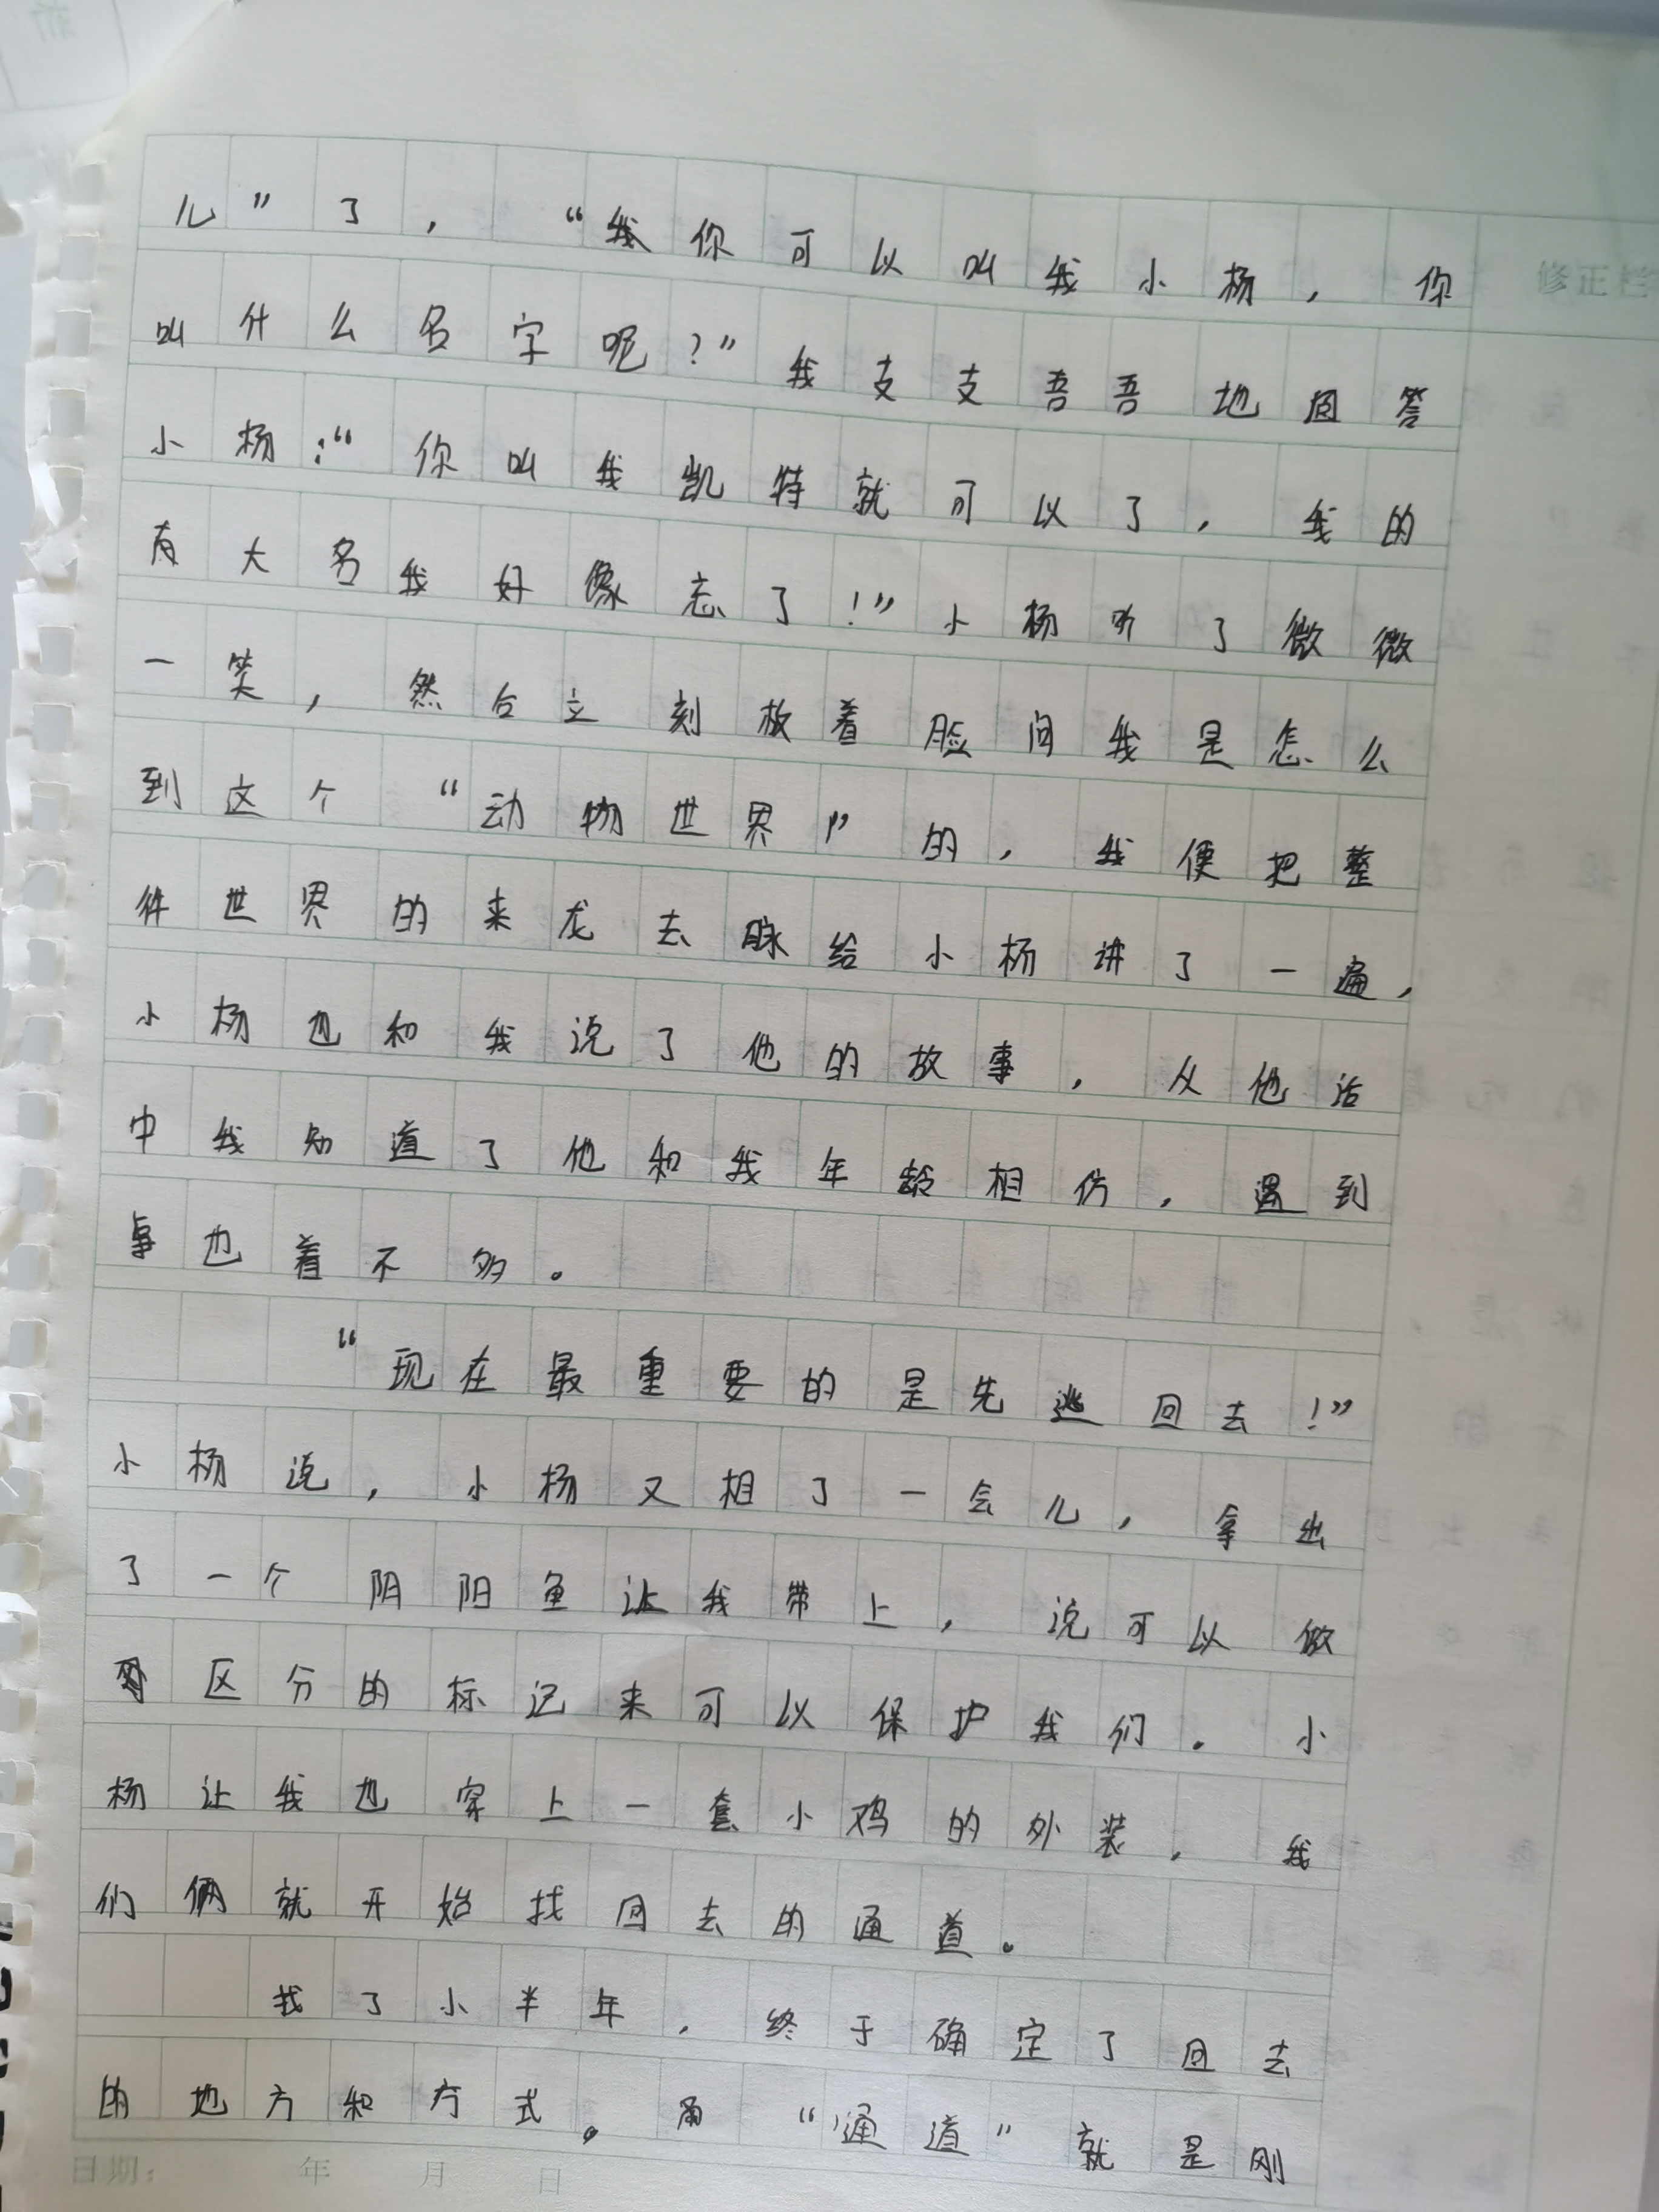 儿”了，“我你可以叫我小杨，你
修正栏
叫什么名字呢？”我支支吾吾地回答
小杨：“你叫我凯特就可以了，我的
有大名我好像忘了！”小杨听了微微
一笑，然后立刻放着脸问我是怎么
到这个“动物世界”的，我便把整
件世界的来龙去脉给小杨讲了一遍，
小杨也和我说了他的故事，从他话
中我知道了他和我年龄相仿，遇到
事也着不多。
“现在最重要的是先逃回去！”
小杨说，小杨又相了一会儿，拿出
了一个阴阳鱼让我带上，说可以做
区分的标记来可以保护我们。小
杨让我也穿上一套小鸡的外装，我
们俩就开始找回去的通道。
找了小半年，终于确定了回去
的地方和方式。而“通道”就是刚
日期： 年 月 日